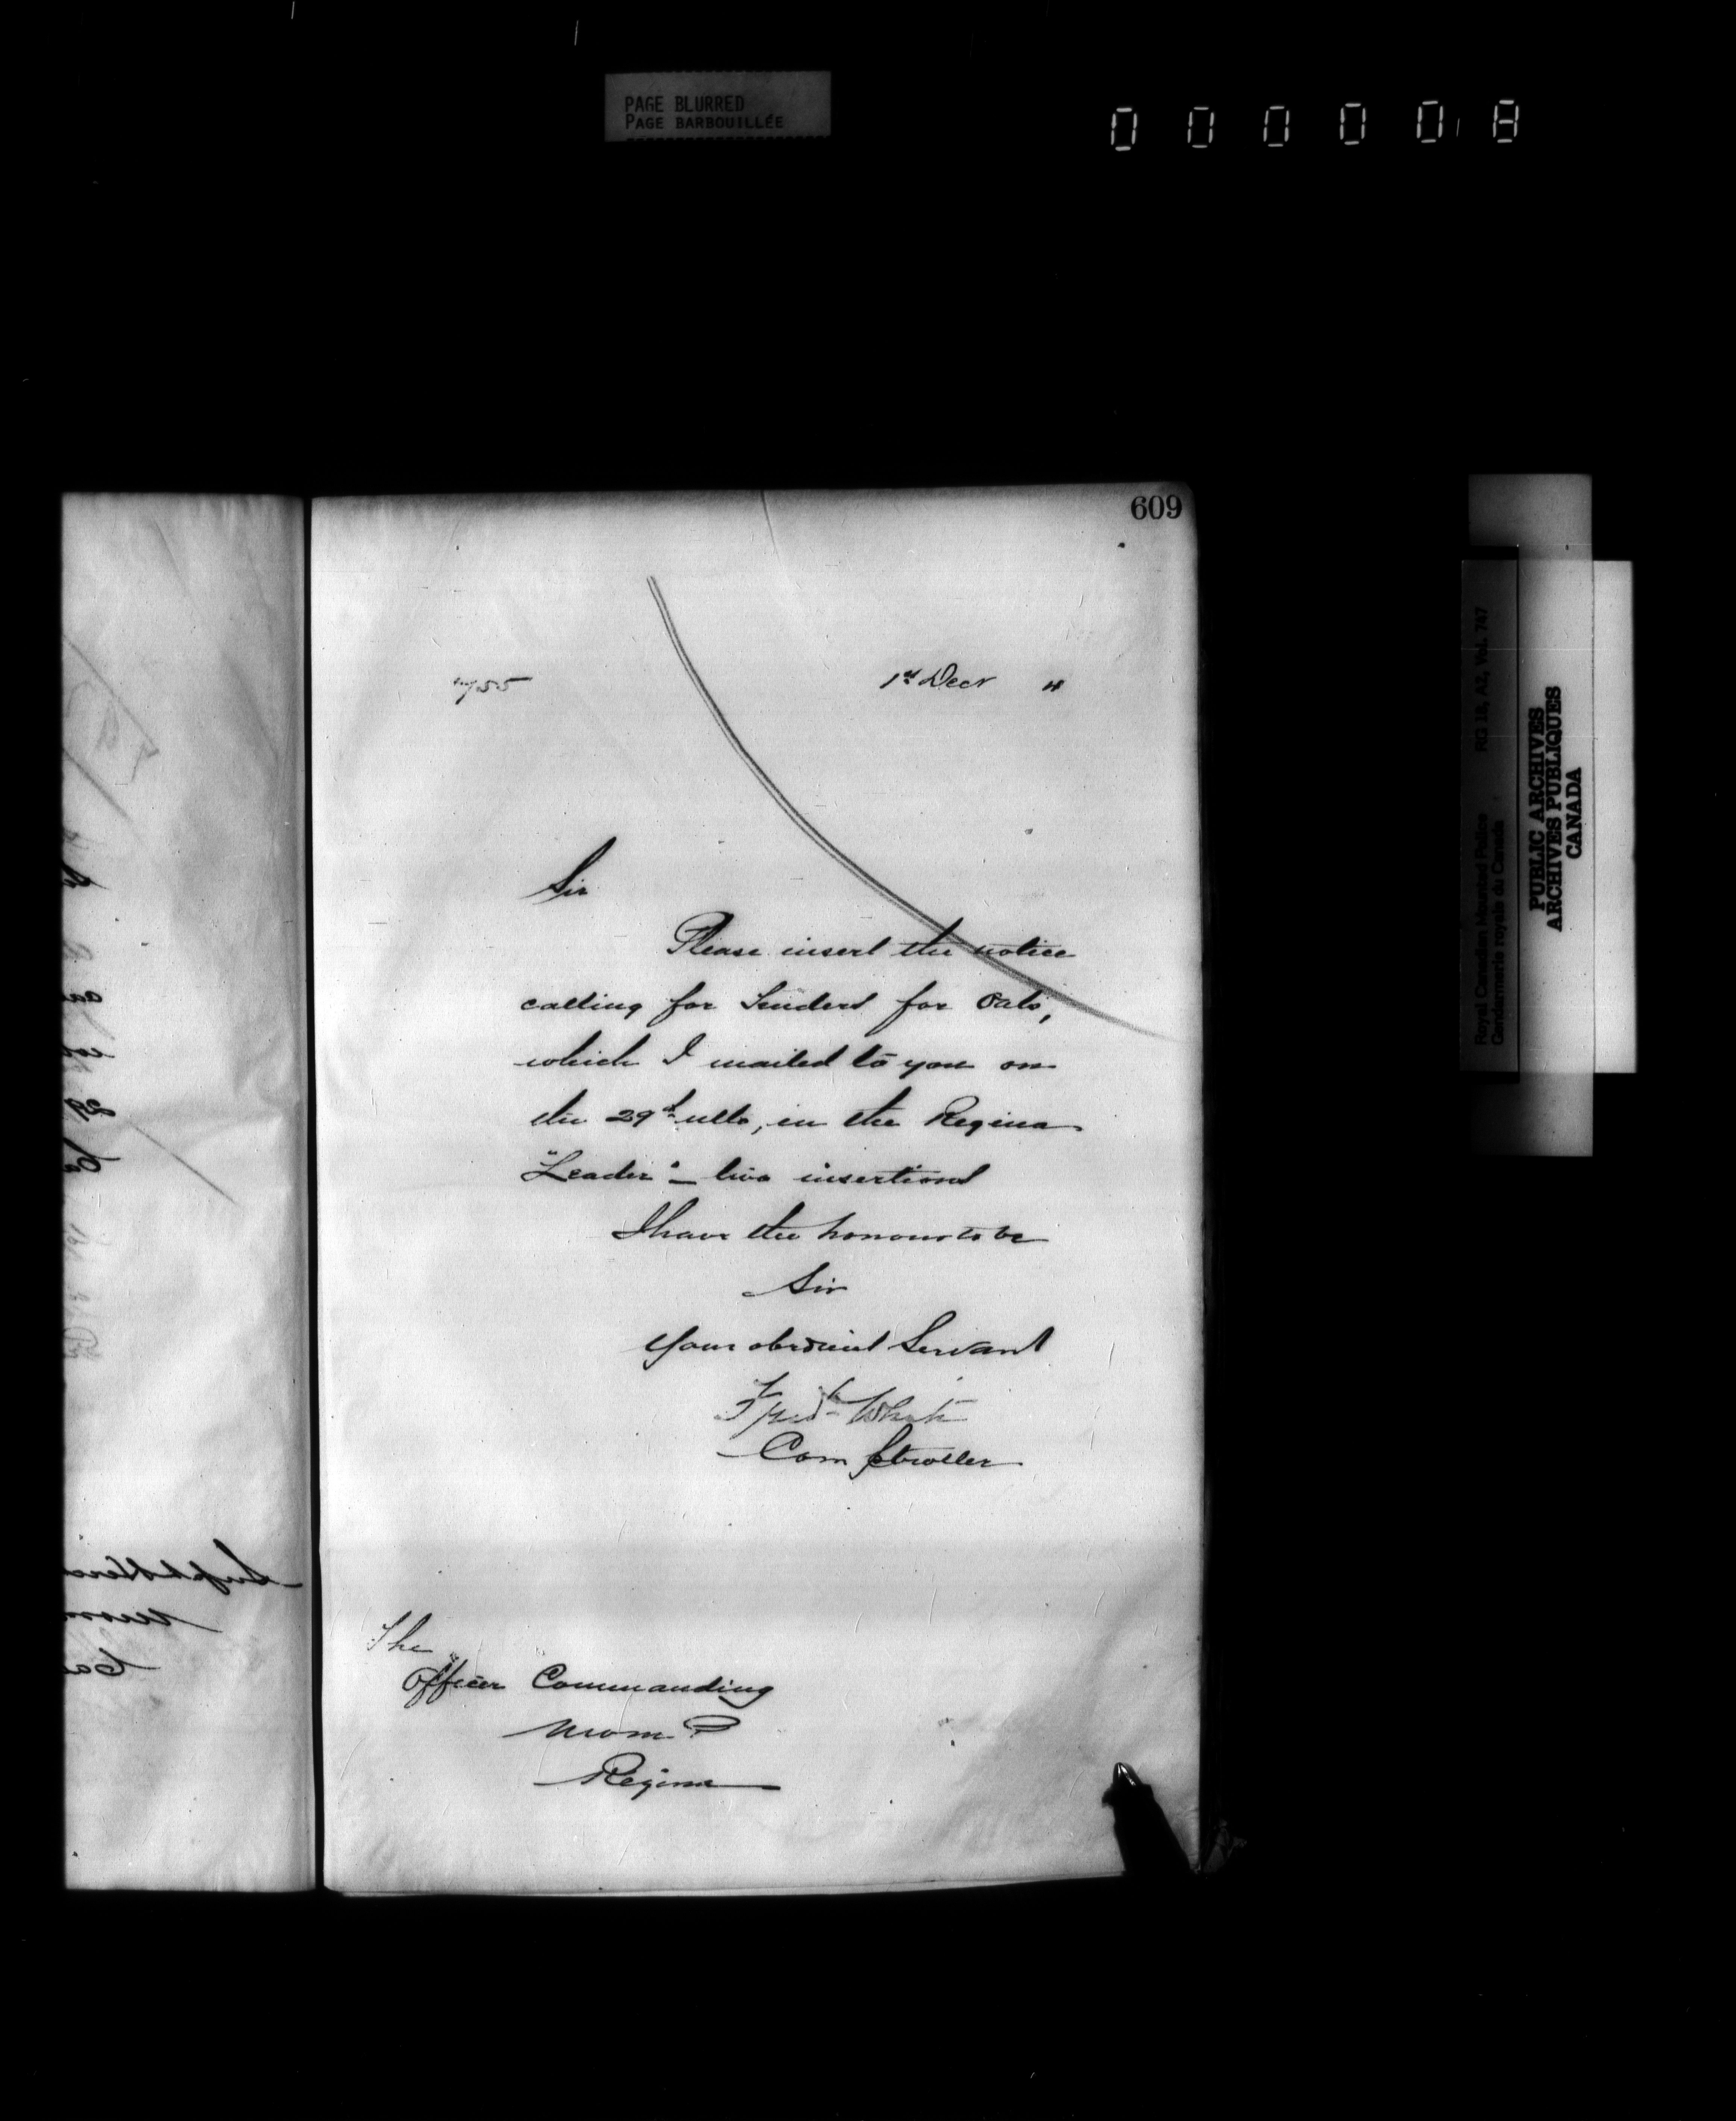 PAGE BLURRED
PAGE BARBOUILLÉE
000008
609
1st Decr 4
Sir
Please insert the notice
calling for Tenders for Oats,
which I mailed to you on
the 29th ulto, in the Regina
"Leader" — two insertions
I have the honour to be
Sir
Your obedient Servant
Fred White
Comptroller
The
Officer Commanding
NWMP
Regina
Royal Canadian Mounted Police RG 18, A2, Vol. 747
Gendarmerie royale du Canada
PUBLIC ARCHIVES
ARCHIVES PUBLIQUES
CANADA